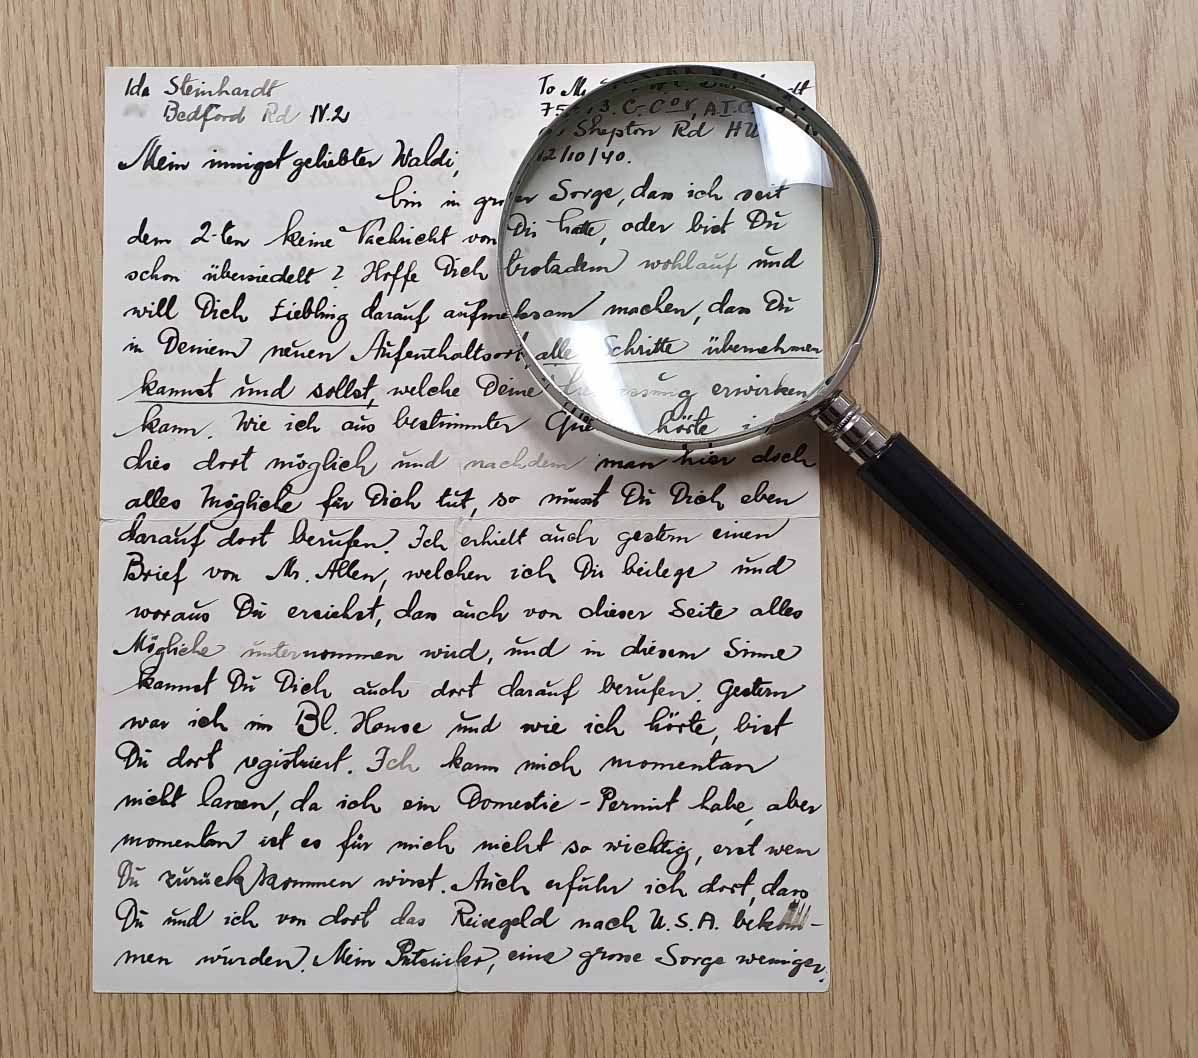 Ida Steinhardt
Bedford Rd N.2
To
3. C. Cor, A.I.C.
Shepton Rd
12/10/40.
Mein innigst geliebter Waldi,
bin in grosser Sorge, dass ich seit
dem 2-ten keine Nachricht von Dir hatte, oder bist Du
schon übersiedelt? Hoffe Dich trotzdem wohlauf und
will Dich Liebling darauf aufmerksam machen, dass Du
in Deinem neuen Aufenthaltsort alle Schritte übernehmen
kannst und sollst, welche Deine erwirken
kann. Wie ich aus bestimmter hörte
dies dort möglich und nachdem man hier doch
alles Mögliche für Dich tut, so musst Du Dich eben
darauf dort berufen. Ich erhielt auch gestern einen
Brief von Mr. Allen, welchen ich Dir beilege und
woraus Du ersiehst, dass auch von dieser Seite alles
Mögliche unternommen wird, und in diesem Sinne
kannst Du Dich auch dort darauf berufen. Gestern
war ich im Bl. House und wie ich hörte, bist
Du dort registriert. Ich kann mich momentan
nicht lassen, da ich ein Domestic-Permit habe, aber
momentan ist es für mich nicht so wichtig, erst wenn
Du zurückkommen wirst. Auch erfuhr ich dort, dass
Du und ich von dort das Reisegeld nach U.S.A. bekom-
men würden. Mein , eine grosse Sorge weniger.